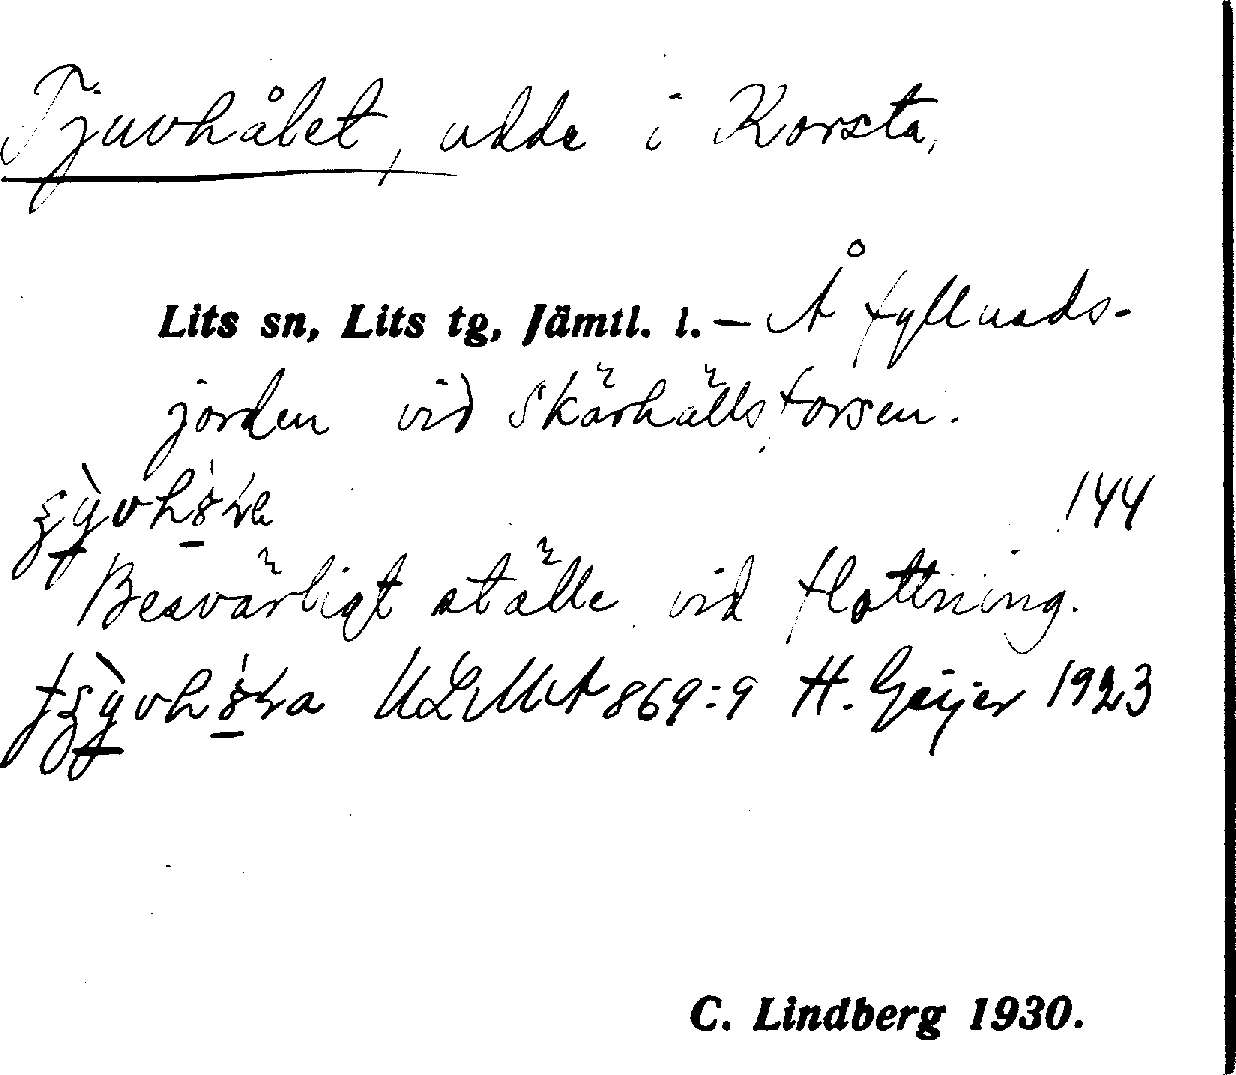 Tjuvhålet, udde i Korsta,
Lits sn, Lits tg, Jämtl. l. – Å fyllnads-
jorden vid Skärhällsforsen.
144
Besvärligt ställe vid flottning.
ULMA 869:9 H. Geijer 1923
C. Lindberg 1930.